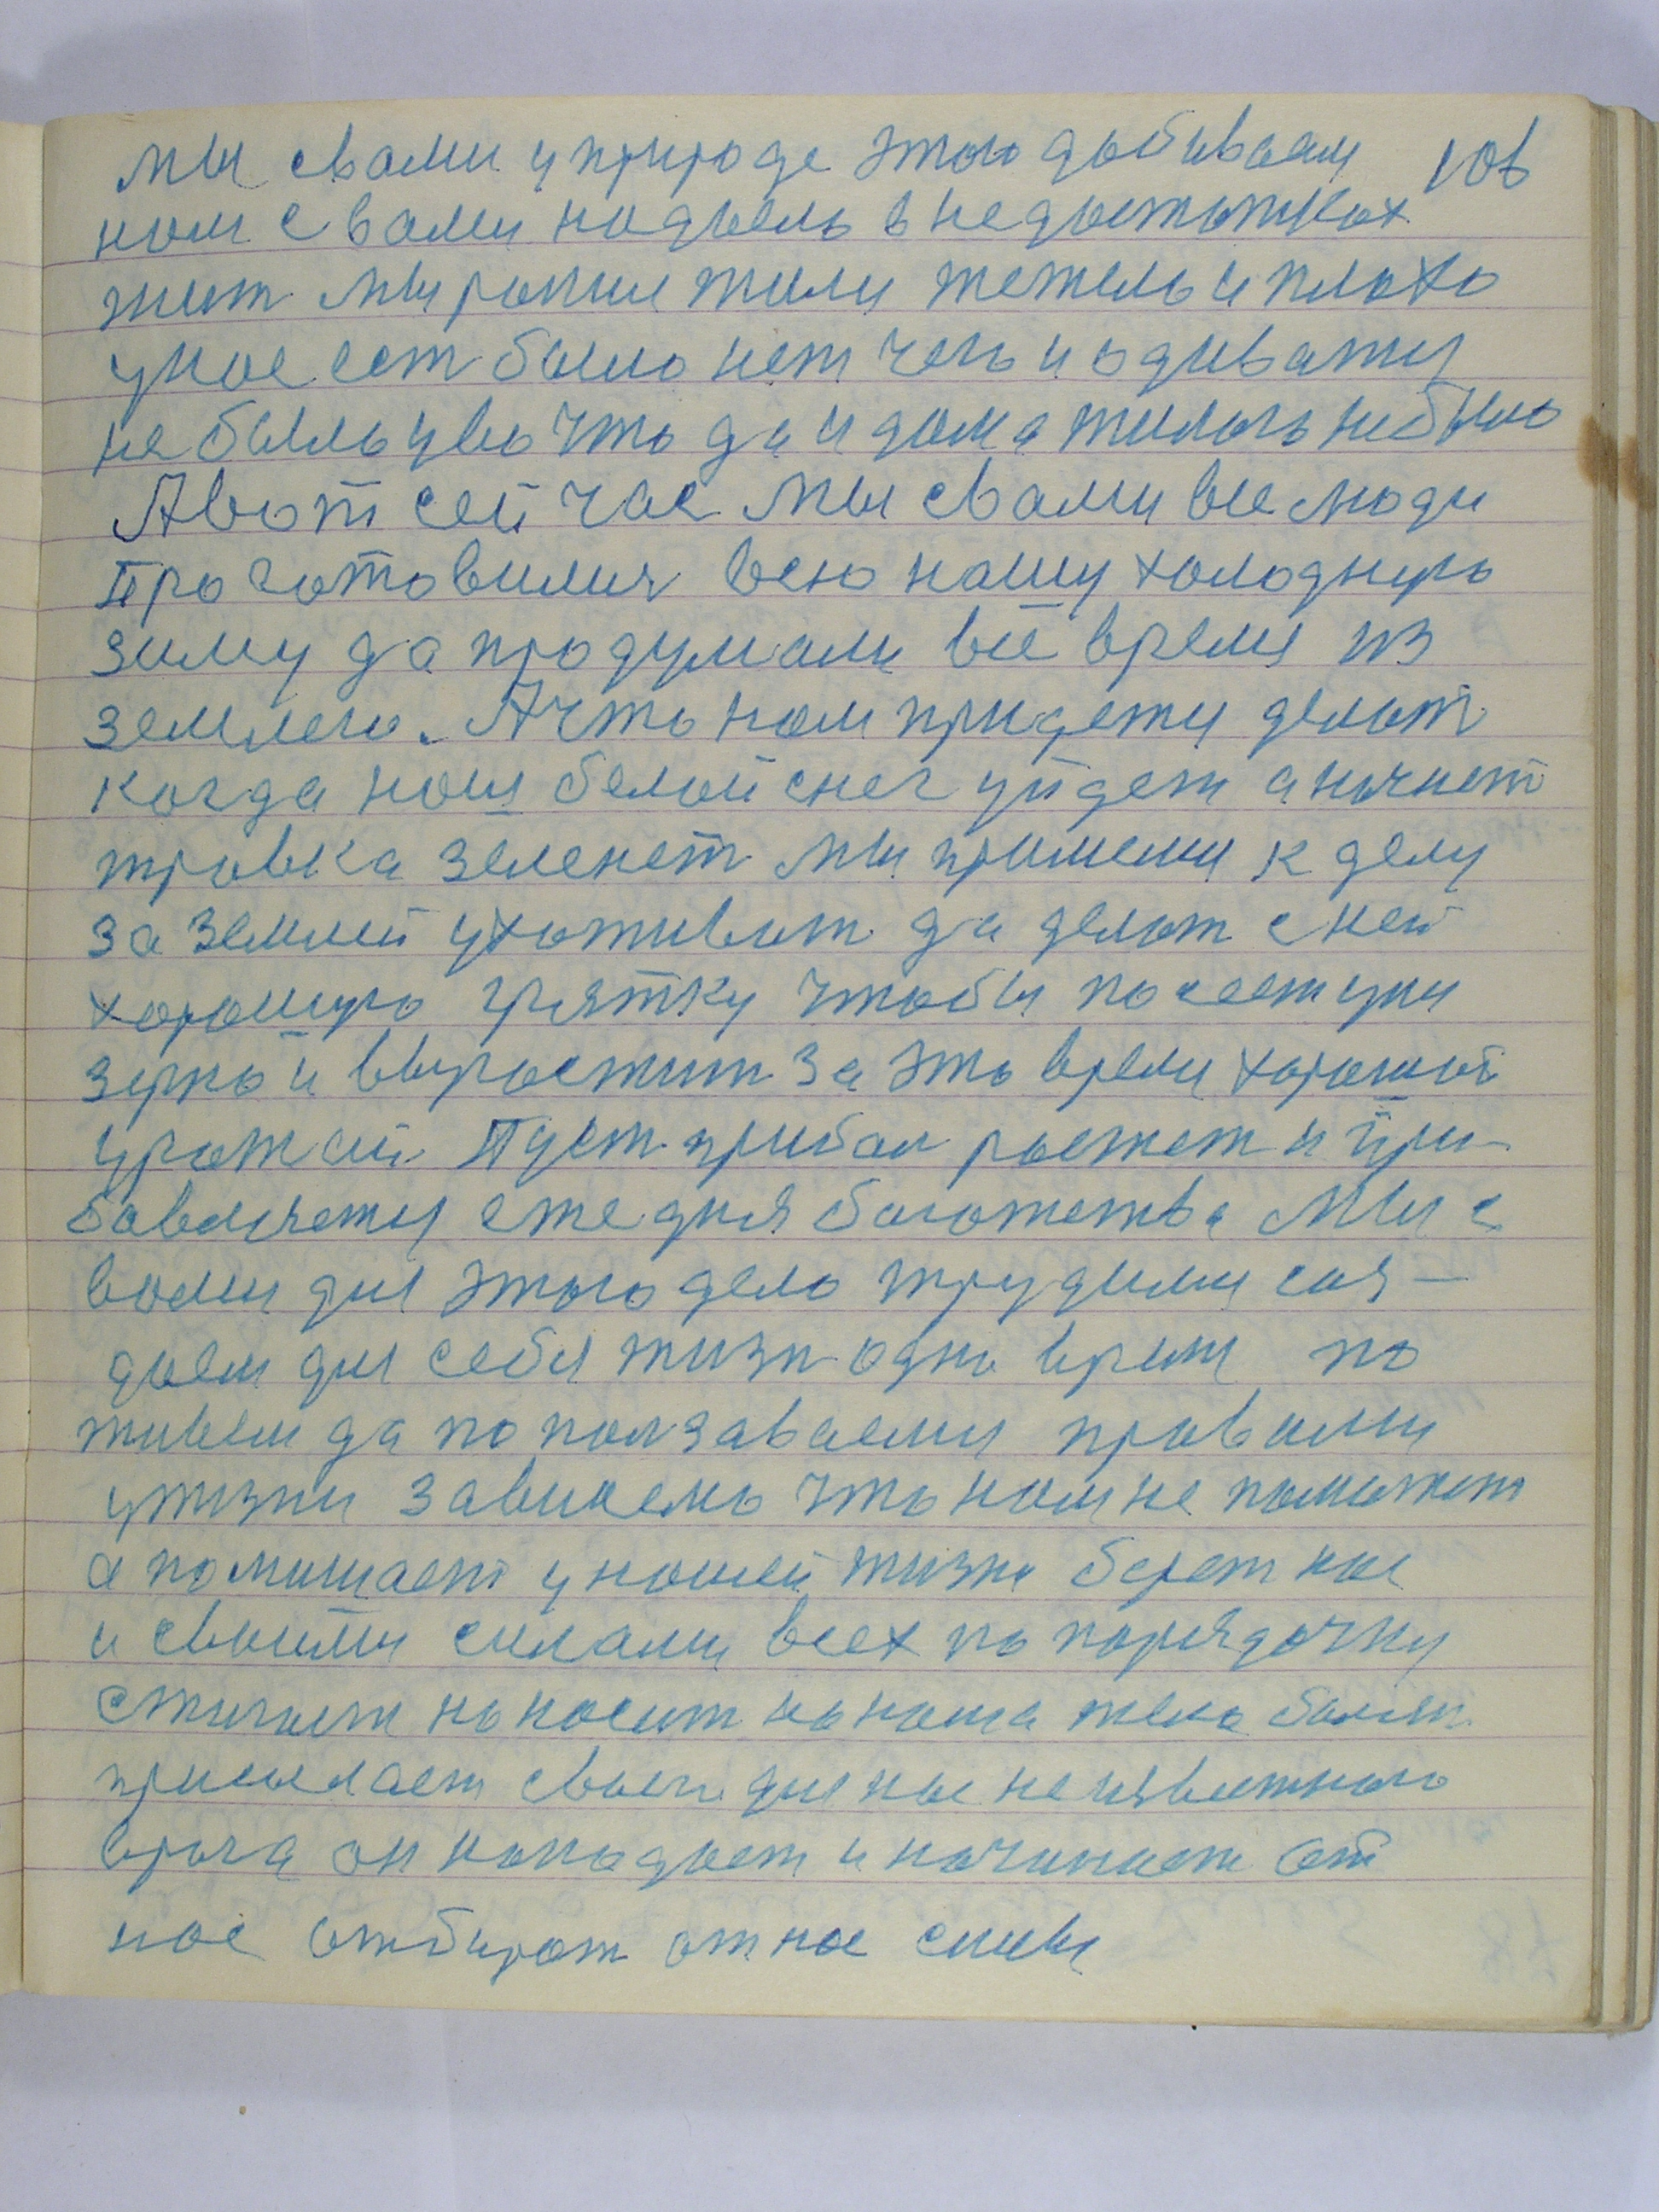 мы свами у природе этого добиваем 106
нам с вами надоело в недостатках
жит мы ранше жили тежело и плохо
у нас ест было нет чего и одиватся
не было у во что да и дома жилого небыло
А вот сей час мы свами все люди
Проготовимся всю нашу холодную
зиму да продумали всё время из
землею. А что нам придется делат
когда наш белой снег уйдет а начнет
травка зеленет мы примемся к делу
за землей ухаживат да делат с ней
хорошую грятку чтобы посеет у ни
зерно и выростит за это время хороший
урожай. Пуст прибал растет и при-
бавляется ежедня богатства Мы с
вами для этого дела трудимся соз-
даем для себя жизн одно время по
живем да попользаваемся правами
у жизни завистью что нам не поможет
а помишает у нашей жизни берет нас
и своими силами всех по порядочку
стигает наносит на наша тела болезн
присылает своего для нас не известного
врага он нападает и начинает от
нас отбират от нас силы